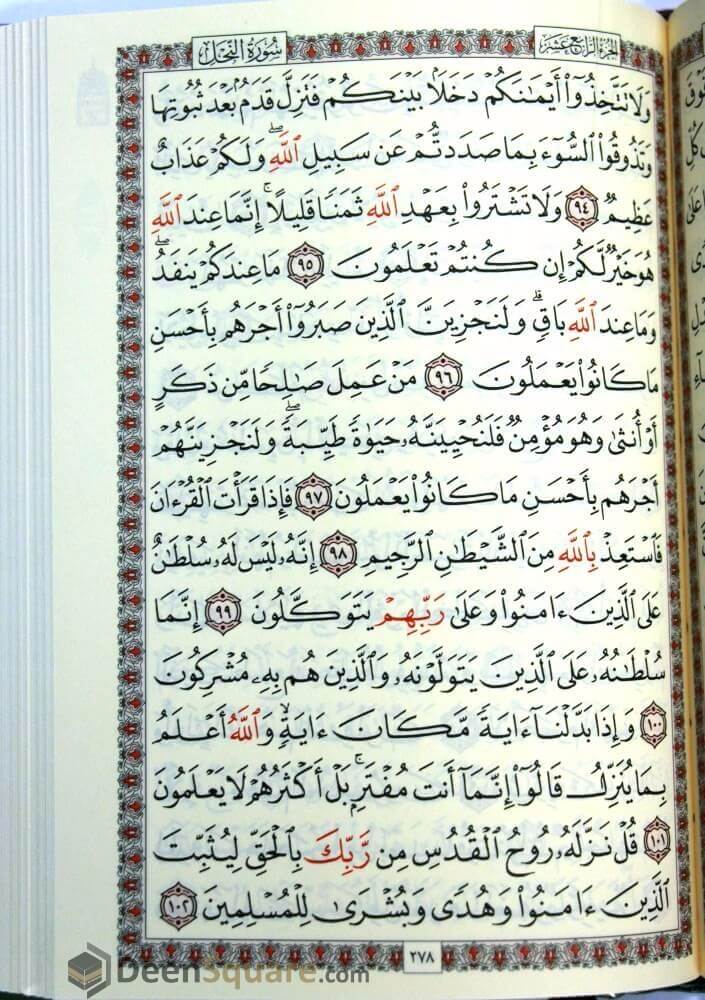 سُورَةُ النَّحْلِ
الجُزْءُ الرَّابِعُ عَشَرَ
وَلَا تَتَّخِذُوٓا۟ أَيْمَٰنَكُمْ دَخَلًۢا بَيْنَكُمْ فَتَزِلَّ قَدَمٌۢ بَعْدَ ثُبُوتِهَا
وَتَذُوقُوا۟ ٱلسُّوٓءَ بِمَا صَدَدتُّمْ عَن سَبِيلِ ٱللَّهِ ۖ وَلَكُمْ عَذَابٌ
عَظِيمٌ ٩٤ وَلَا تَشْتَرُوا۟ بِعَهْدِ ٱللَّهِ ثَمَنًا قَلِيلًا ۚ إِنَّمَا عِندَ ٱللَّهِ
هُوَ خَيْرٌ لَّكُمْ إِن كُنتُمْ تَعْلَمُونَ ٩٥ مَا عِندَكُمْ يَنفَدُ ۖ
وَمَا عِندَ ٱللَّهِ بَاقٍ ۗ وَلَنَجْزِيَنَّ ٱلَّذِينَ صَبَرُوٓا۟ أَجْرَهُم بِأَحْسَنِ
مَا كَانُوا۟ يَعْمَلُونَ ٩٦ مَنْ عَمِلَ صَٰلِحًا مِّن ذَكَرٍ
أَوْ أُنثَىٰ وَهُوَ مُؤْمِنٌ فَلَنُحْيِيَنَّهُۥ حَيَوٰةً طَيِّبَةً ۖ وَلَنَجْزِيَنَّهُمْ
أَجْرَهُم بِأَحْسَنِ مَا كَانُوا۟ يَعْمَلُونَ ٩٧ فَإِذَا قَرَأْتَ ٱلْقُرْءَانَ
فَٱسْتَعِذْ بِٱللَّهِ مِنَ ٱلشَّيْطَٰنِ ٱلرَّجِيمِ ٩٨ إِنَّهُۥ لَيْسَ لَهُۥ سُلْطَٰنٌ
عَلَى ٱلَّذِينَ ءَامَنُوا۟ وَعَلَىٰ رَبِّهِمْ يَتَوَكَّلُونَ ٩٩ إِنَّمَا
سُلْطَٰنُهُۥ عَلَى ٱلَّذِينَ يَتَوَلَّوْنَهُۥ وَٱلَّذِينَ هُم بِهِۦ مُشْرِكُونَ
١٠٠ وَإِذَا بَدَّلْنَآ ءَايَةً مَّكَانَ ءَايَةٍ ۙ وَٱللَّهُ أَعْلَمُ
بِمَا يُنَزِّلُ قَالُوٓا۟ إِنَّمَآ أَنتَ مُفْتَرٍۭ ۚ بَلْ أَكْثَرُهُمْ لَا يَعْلَمُونَ
١٠١ قُلْ نَزَّلَهُۥ رُوحُ ٱلْقُدُسِ مِن رَّبِّكَ بِٱلْحَقِّ لِيُثَبِّتَ
ٱلَّذِينَ ءَامَنُوا۟ وَهُدًى وَبُشْرَىٰ لِلْمُسْلِمِينَ ١٠٢
٢٧٨
DeenSquare.com